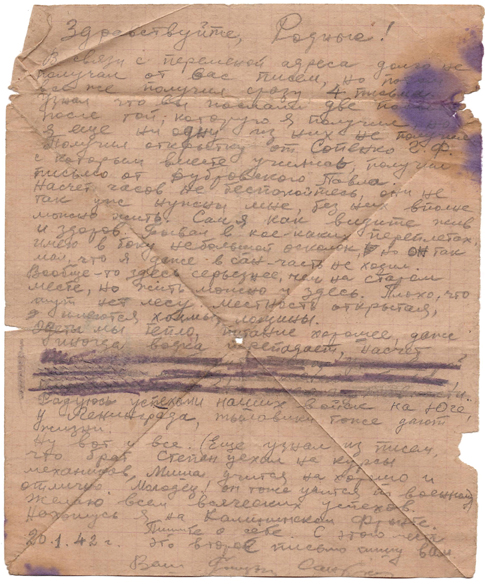 Здравствуйте, Родные!
В связи с переменой адреса долго не
получал от Вас писем, но
все же получил сразу 4 письма.
Узнал что вы послали две
после той, которую я получил
я еще ни одну из них не получил
Получил открытку от
с которым вместе учились, получил
письмо от Дубровского Павла
Насчет часов не беспокойтесь, они не
так уж нужны мне, без них вполне
можно жить. Сам я как видите жив
и здоров, бывал в кое-каких переплетах,
имею в боку небольшой осколок, но он так
мал, что я даже в сан-часть не ходил.
Вообще-то здесь серьезнее, чем на старом
месте, но жить можно и здесь. Плохо, что
тут нет лесу местность открытая,
имеются холмы, лощины.
Одеты мы тепло, питание хорошее, даже
иногда водка перепадает, насчет
Радуюсь успехами наших войск на Юге,
у Ленинграда, тоже дают
жизни.
Ну вот и все (Еще узнал из писем,
что брат Степан уехал на курсы
механиков, Миша учится на хорошо и
отлично Молодец! он тоже учится по военному
Желаю всем всяческих успехов.
Нахожусь я на Калининском фронте.
Пишите о себе. С этого
20.1.42 г. это второе письмо пишу вам
Ваш